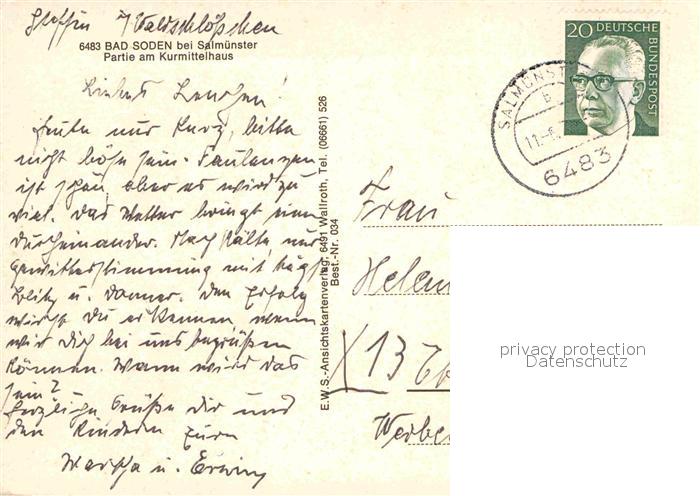 Waldschlößchen
6483 BAD SODEN bei Salmünster
Partie am Kurmittelhaus
Liebes Lenchen!
Heute nur kurz, bitte
nicht böse sein. Faulenzen
ist schön, aber es wird zu
viel. Das Wetter bringt uns
durcheinander. Mal Kälte und
Gewitterstimmung mit
Blitz u. Donner. Den Erfolg
wirst Du erkennen, wenn
wir Dich bei uns begrüßen
können. Wann wird das
sein?
Herzliche Grüße Dir und
den Kindern Eure
u. Erwin
E.W.S.-Ansichtskartenverlag, 6491 Wallroth, Tel. (06661) 526
Best.-Nr. 034
20 DEUTSCHE
BUNDESPOST
SALMÜNST
b
11.-6.
6483
Frau
Helen
13
privacy protection
Datenschutz